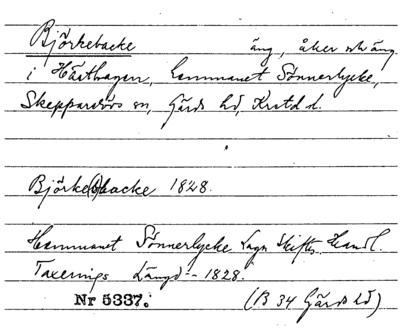 Björkebacke äng, åker och äng
i Hästhagen, hemmanet Sönnerlycke,
Skepparslövs sn, Gärds hd, Krstd l.
Björke(b)backe 1828.
Hemmanet Sönnerlycke Laga Skiftes Handl.
Taxerings Längd - 1828.
Nr 5337. (B 34 Gärds hd)